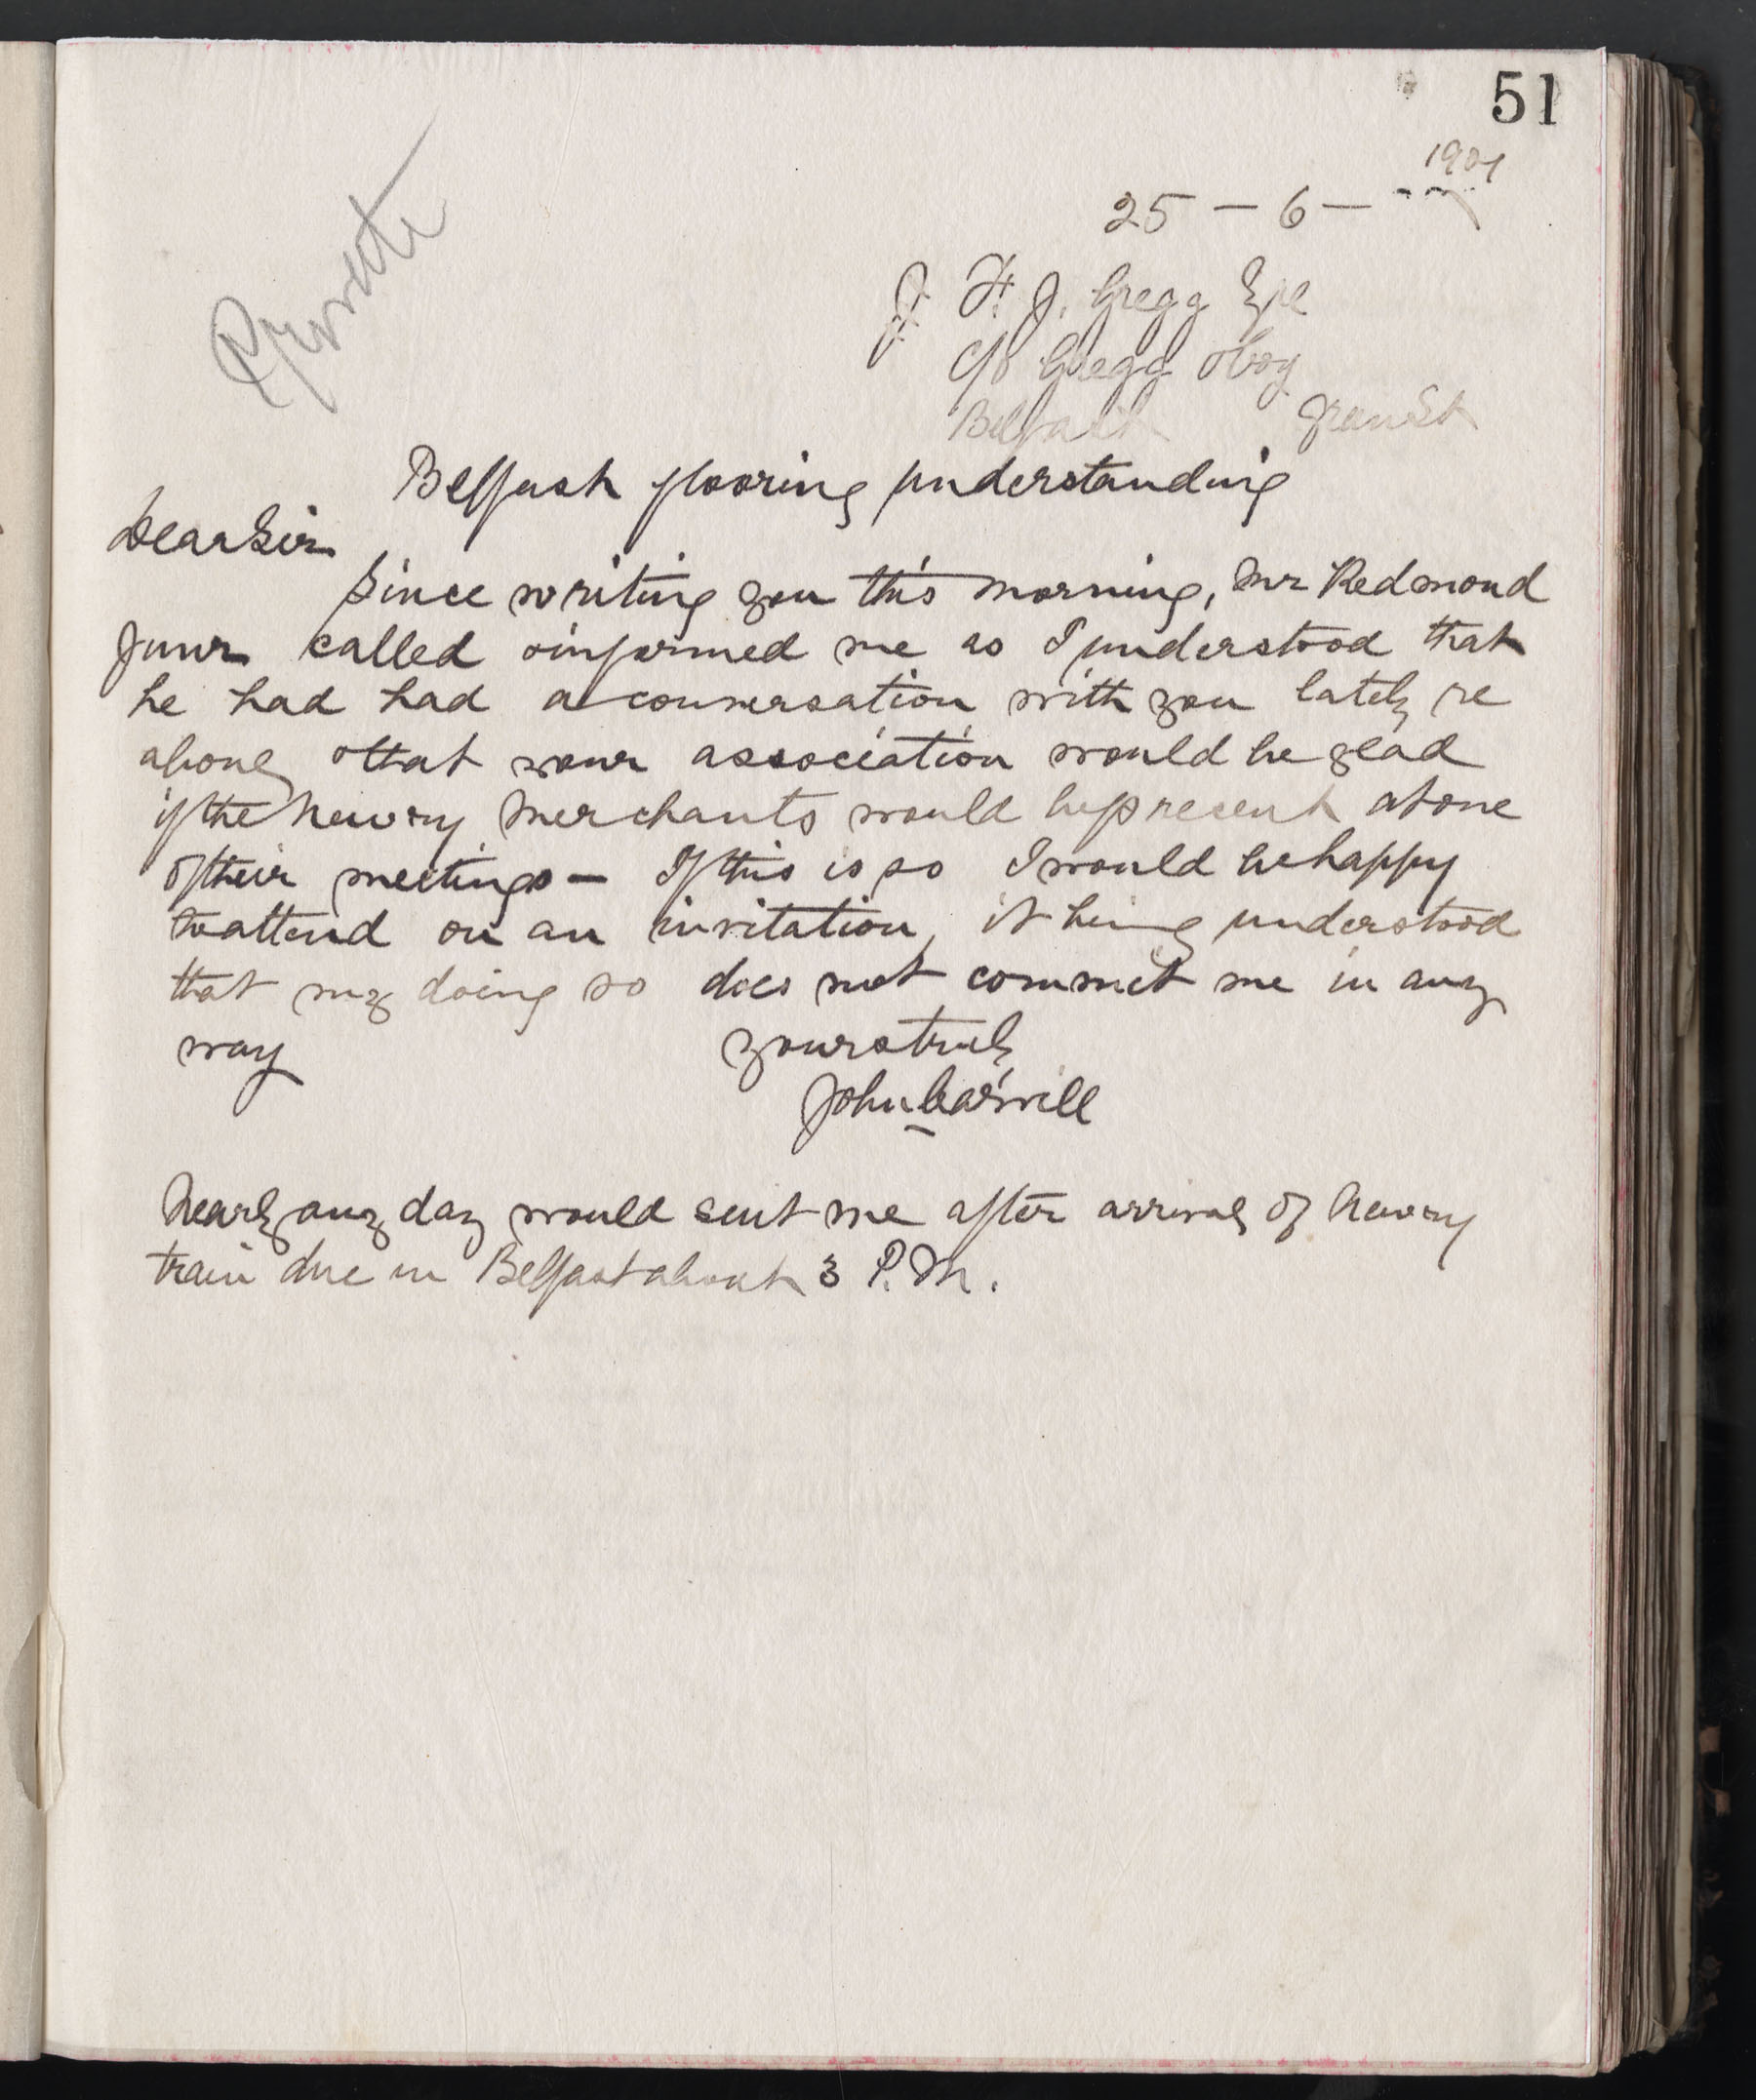 51
1904
25 - 6 -
Private
J. F. J. Gregg Esq
c/o Gregg & Coy
Belfast
Belfast flooring understanding
Dear Sir
Since writing you this morning, Mr Redmond
Junr called & informed me as I understood that
he had had a conversation with you lately re
above & that your association would be glad
if the Newry Merchants would be present at one
of their meetings — If this is so I would be happy
to attend on an invitation, it being understood
that my doing so does not commit me in any
way yours truly
John Carvill
Nearly any day would suit me after arrival of Newry
train due in Belfast about 3 P.M.